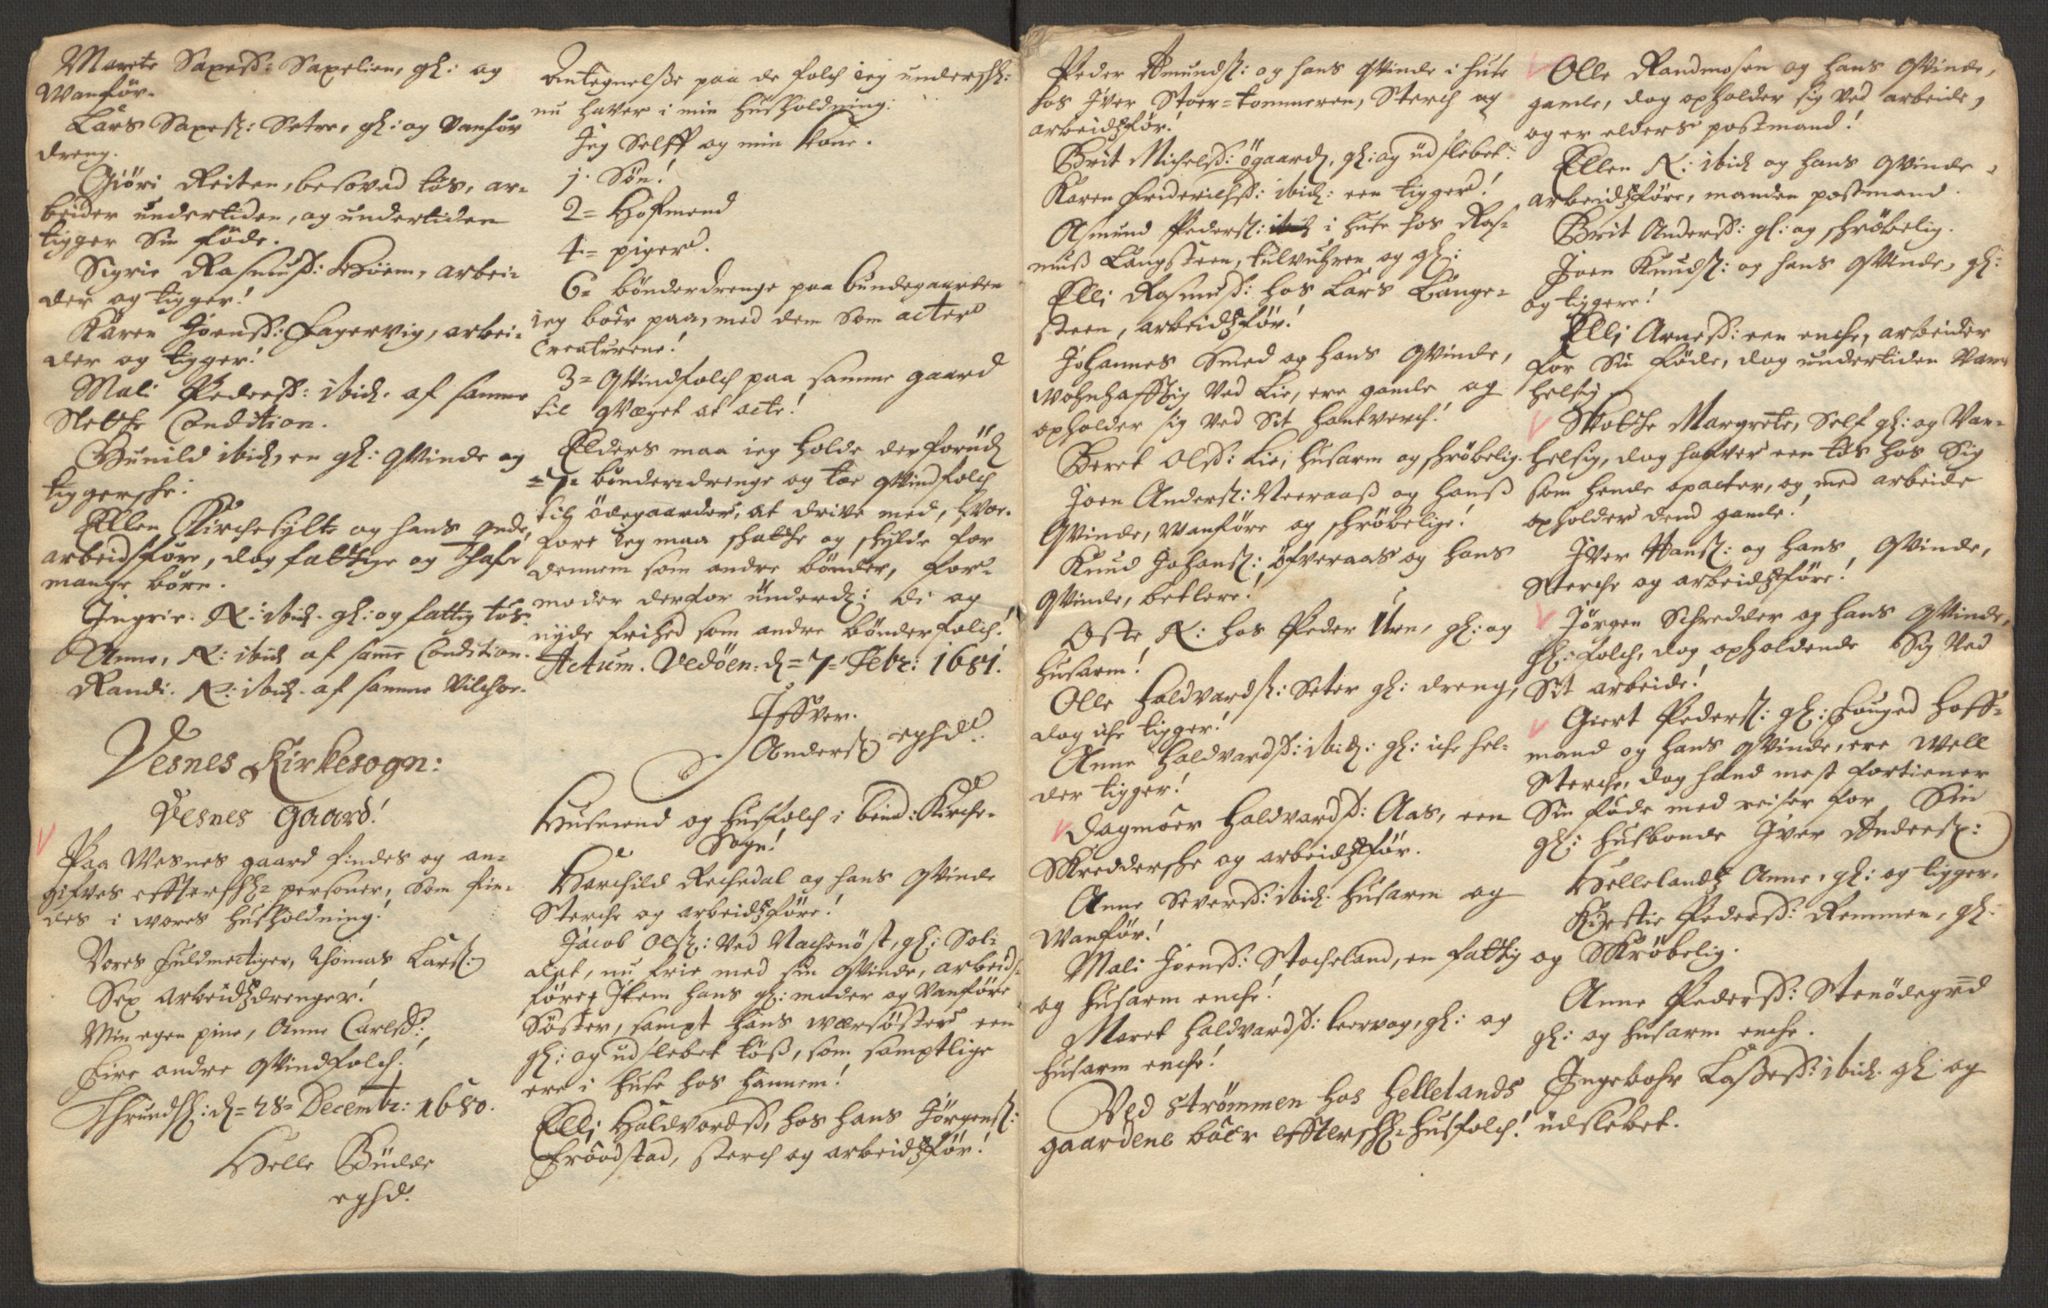 Marete Saxesd: Saxelien, gl: og
Wanför.
Lars Saxes: Setre, gl: og vanför
dreng.
Giöri Reiten, besoved tös, ar-
beider undertiden, og undertiden
tigger Sin föde.
Sigrie Rasmusd: Höem, arbei-
der og tigger!
Karen Joensd: Fagervig, arbei-
der og tigger!
Mali Pedersd: ibid. af samme
Slette Condition.
Gunild ibid, en gl: Qvinde og
tiggersche:
Ellen Kirchesylte og hans Qvde,
arbeidsföre, dog fattige og Hafr
mange börn.
Ingrie. N: ibid. gl: og fattig tös.
Anne, N: ibid af samme Condition.
Randi. N: ibid. af samme Vilchor.
Vesnes Kirkesogn:
Vesnes Gaard!
Paa Wesnes gaard findes og an-
gifves effterschr: personer, som fin-
des i wores Husholdning!
Vores fuldmectiger, Thomas Lars:
Sex arbeidsdrenger!
Min egen pine, Anne Carlsd:,
Fire andre Qvindfolch!
Thrundh: d= 28= Decembr: 1680.
Helle Büdde
eghd.
Antegnelse paa de folch ieg underschr:
nu haver i min Husholdning:
Jeg Selff og min Kone.
1. Sön!
2= Hofmend
4= piger.
6= bönderdrenge paa bundegaarden
ieg böer paa, med dem som acter
Creaturene!
3= Qvindfolch paa samme gaard
til Qvæget at acte!
Elders maa ieg holde der foruden
=7= bönderdrenge og toe Qvindfolch
til ödegaarder, at drive med, Hvor-
fore ieg maa schatte og schylde for
dennem som andre bönder, for-
moder derfor underd: di og
nyde frihed som andre bönder folch!
Actum. Vedöen: d= 7= Febr: 1681.
Iffver.
Anders: eghd.
Husmend og Husfolch i bemd: Kirche-
Sogn!
Harchild Rechedal og hans Qvinde
Sterche og arbeidsföre!
Jacob Ols: Ved Nachenöst, gl: Sol-
dat, nu frie med sin Qvinde, arbeids-
före, Item hans gl: moder og Vanföre
Söster, sampt Hans wærsöster een
gl: og udslebet töss, som samptlige
ere i Huse hos Hannem!
Elli Haldvordsd, hos hans Jörgens:
Fröödstad, sterch og arbeidsför!
Peder Amunds: og hans Qvinde i huse
hos Iver Stoer=tommeren, Sterch og
arbeidsför!
Brit Michelsd: Ögaard, gl: og udslebet.
Karen Friderichsd: ibid: een tigger!
Asmund Peders: i huse hos Ras-
muss Langsteen, tulvuhren og gl:
Elli Rasmusd: hos Lars Lange-
steen, arbeidsför!
Johannes Smed og hans Qvinde,
wohnhafftig Ved Lie, ere gamle og
opholder sig ved Sit Hantverch!
Beret Olsd: Lie, Husarm og schröbelig.
Joen Anders: Neeraass og Hanss
Qvinde, Wanföre og schröbelige!
Knud Johans: Öfveraas og hans
Qvinde, betlere!
Oste N: hos Peder Uren, gl: og
Husarm!
Olle Haldvards: Seter gl: dreng,
dog iche tigger!
Anne Haldvardsd: ibid: gl: iche hel-
der tigger!
Dagmöer Haldvardsd: Aas, een
Skreddersche og arbeidsför.
Anne Seversd: ibid. Husarm og
Wanför!
Mali Joensd: Stocheland, en fattig
og Husarm enche!
Maret Haldvardsd: Leervog, gl: og
Husarm enche!
Ved Strömmen hos Hellelands
gaardene böer effterschr: Husfolch!
Olle Randmosen og hans Qvinde,
gamle, dog opholder sig ved arbeide,
og er elders postmand!
Ellen N: ibid og hans Qvinde
arbeidsföre, manden postmand.
Brit Andersd: gl: og schröbelig.
Joen Knuds: og hans Qvinde, gl:
og tiggere!
Elli Arnesd: een enche, arbeider
for Sin föde, dog undertiden Van-
helsig
Motche Margrete, Self gl: og Van-
helsig, dog haver een tös hos Sig
som hende opacter, og med arbeide
opholder dend gamle!
Iver Hans: og hans Qvinde,
Sterche og arbeidsföre!
Jörgen Schredder og hans Qvinde,
gl: folch, dog opholdende Sig ved
Sit arbeide!
Giert Peders: gl: fouged Hoff-
mand og hans Qvinde, ere well
Sterche, dog hand mest fortiener
Sin föde med reiser for Sin
gl: Husbonde Iver Anders:
Hellelands Anne, gl: og tigger.
Kirstie Pedersd: Remmen, gl:
og Skröbelig.
Anne Pedersd: Stenödegrd
gl: og Husarm enche.
Ingebohr Lassesd: ibid. gl: og
udslebet.